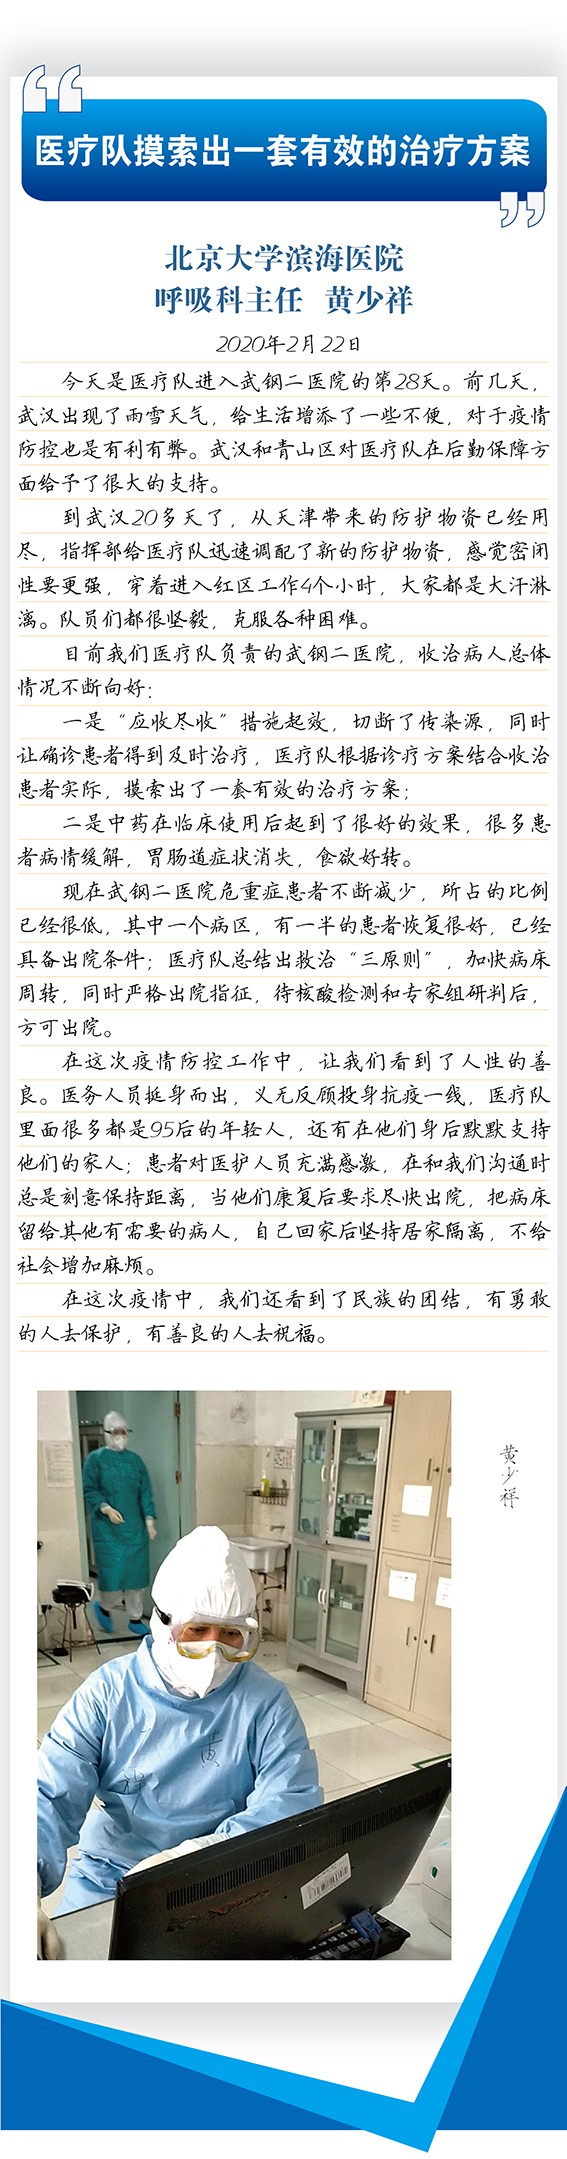 医疗队摸索出一套有效的治疗方案
北京大学滨海医院
呼吸科主任 黄少祥
2020年2月22日
今天是医疗队进入武钢二医院的第28天。前几天，
武汉出现了雨雪天气，给生活增添了一些不便，对于疫情
防控也是有利有弊。武汉和青山区对医疗队在后勤保障方
面给予了很大的支持。
到武汉20多天了，从天津带来的防护物资已经用
尽，指挥部给医疗队迅速调配了新的防护物资，感觉密闭
性要更强，穿着进入红区工作4个小时，大家都是大汗淋
漓。队员们都很坚毅，克服各种困难。
目前我们医疗队负责的武钢二医院，收治病人总体
情况不断向好：
一是“应收尽收”措施起效，切断了传染源，同时
让确诊患者得到及时治疗，医疗队根据诊疗方案结合收治
患者实际，摸索出了一套有效的治疗方案；
二是中药在临床使用后起到了很好的效果，很多患
者病情缓解，胃肠道症状消失，食欲好转。
现在武钢二医院危重症患者不断减少，所占的比例
已经很低，其中一个病区，有一半的患者恢复很好，已经
具备出院条件；医疗队总结出救治“三原则”，加快病床
周转，同时严格出院指征，待核酸检测和专家组研判后，
方可出院。
在这次疫情防控工作中，让我们看到了人性的善
良。医务人员挺身而出，义无反顾投身抗疫一线，医疗队
里面很多都是95后的年轻人，还有在他们身后默默支持
他们的家人；患者对医护人员充满感激，在和我们沟通时
总是刻意保持距离，当他们康复后要求尽快出院，把病床
留给其他有需要的病人，自己回家后坚持居家隔离，不给
社会增加麻烦。
在这次疫情中，我们还看到了民族的团结，有勇敢
的人去保护，有善良的人去祝福。
黄少祥
黄